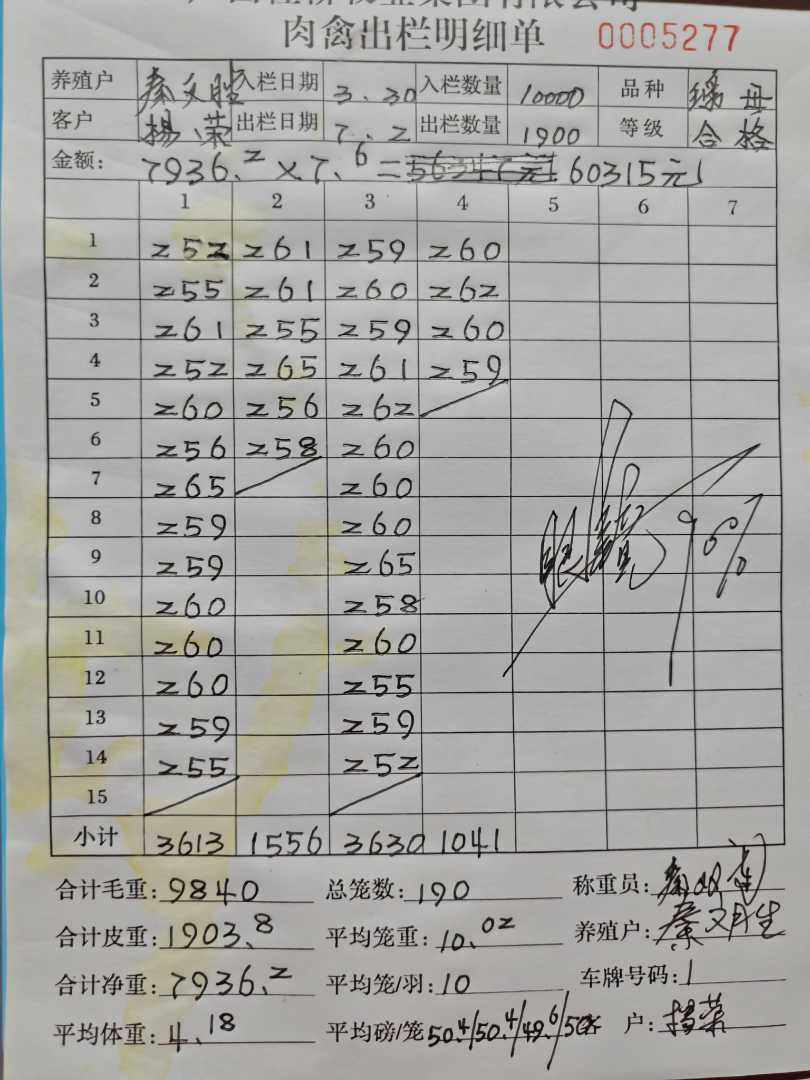 肉禽出栏明细单 0005277
养殖户 秦文胜 入栏日期 3.30 入栏数量 10000 品种 绵母
客户 杨荣 出栏日期 7.2 出栏数量 1900 等级 合格
金额: 7936.2×7.6= 60315元
1 2 3 4 5 6 7
1 252 261 259 260
2 255 261 260 262
3 261 255 259 260
4 252 265 261 259
5 260 256 262
6 256 258 260
7 265 260
8 259 260
9 259 265
10 260 258
11 260 260
12 260 255
13 259 259
14 255 252
15
96%
小计 3613 1556 3630 1041
合计毛重: 9840 总笼数: 190 称重员:
合计皮重: 1903.8 平均笼重: 10.02 养殖户: 秦
合计净重: 7936.2 平均笼/羽: 10 车牌号码:
平均体重: 4.18 平均磅/笼 50.4/50.4/49.6/50 客户: 杨荣